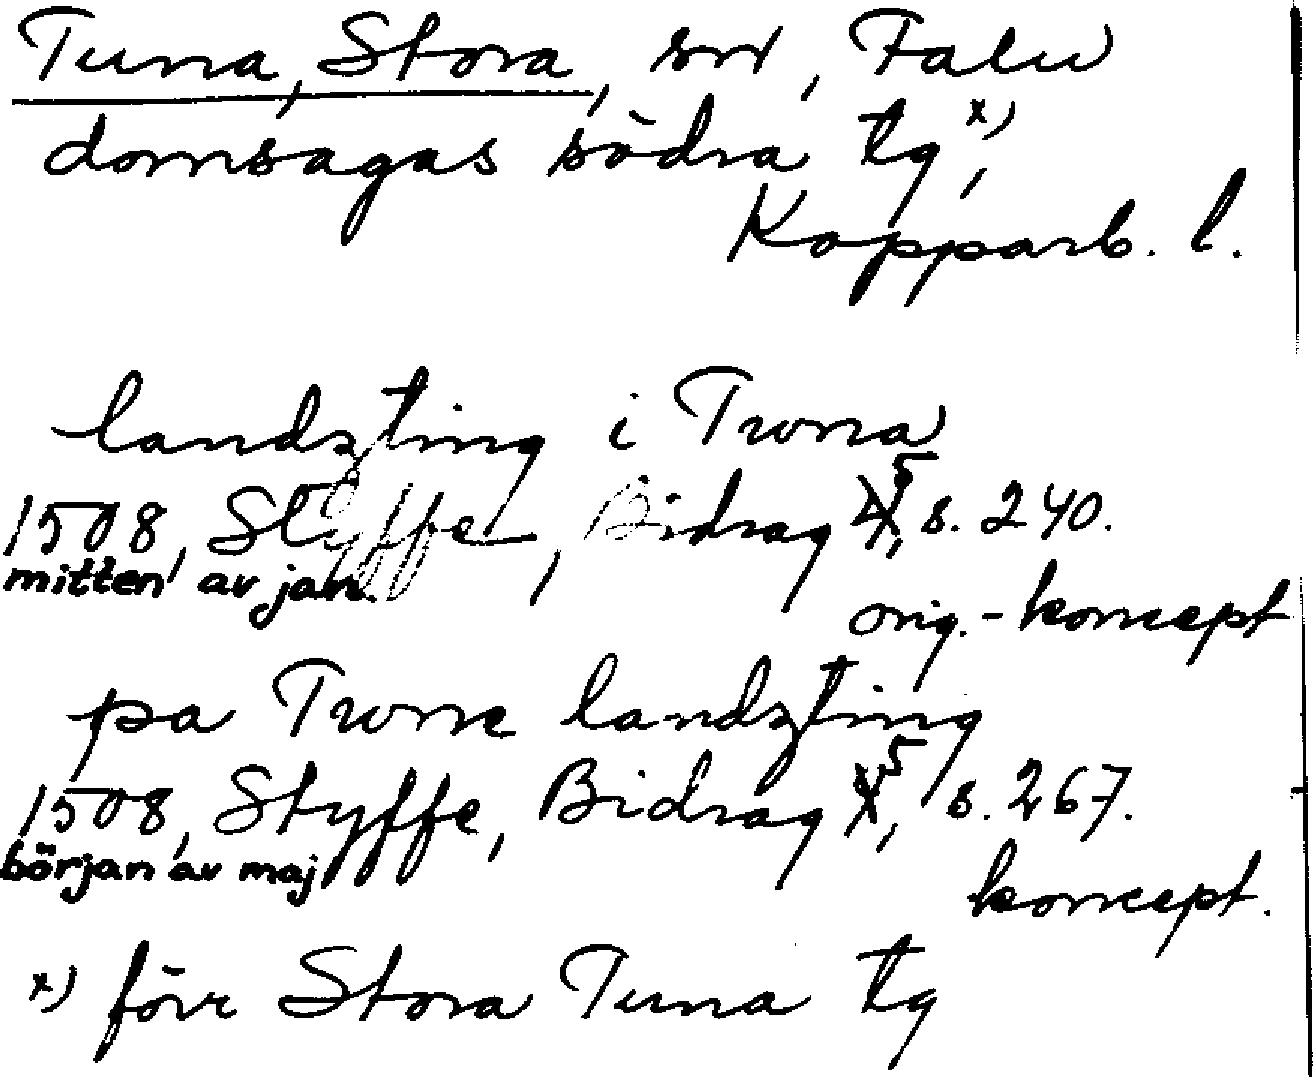 Tuna, Stora, sn, Falu
domsagas södra tg x),
Kopparb. l.
landzting i Twna
1508, Styffe, Bidrag 5, s. 240.
mitten av jan.
orig.-koncept
pa Twne landzting
1508, Styffe, Bidrag 5, s. 267.
början av maj
koncept.
x) förr Stora Tuna tg